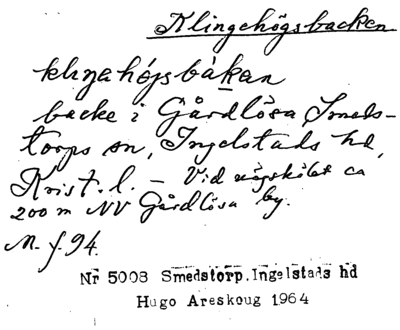 Klingehögsbacken
klinahöjsbákan
backe i Gårdlösa Smeds-
torps sn, Ingelstads hd,
Krist. l. – Vid vägskälet ca
200 m NV Gårdlösa by.
M. f. 94.
Nr 5008 Smedstorp.Ingelstads hd
Hugo Areskoug 1964